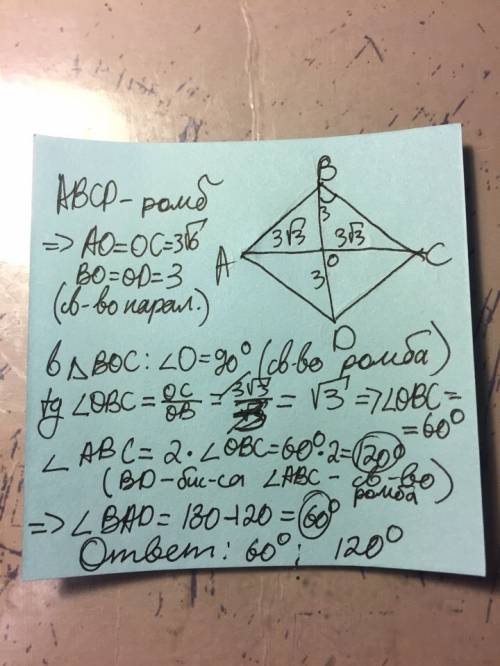 ABCD - ромб
=> AO=OC=3√6
BO=OD=3
(св-во парал.)
B
3
3√3 3√3
A O C
3
D
в △BOC: ∠O=90° (св-во ромба)
tg ∠OBC = OC/OB = 3√3/3 = √3 => ∠OBC =
= 60°
∠ABC = 2·∠OBC=60°·2=120°
(BD-бис-са ∠ABC - св-во
ромба)
=> ∠BAD = 180-120 = 60°
Ответ: 60°; 120°